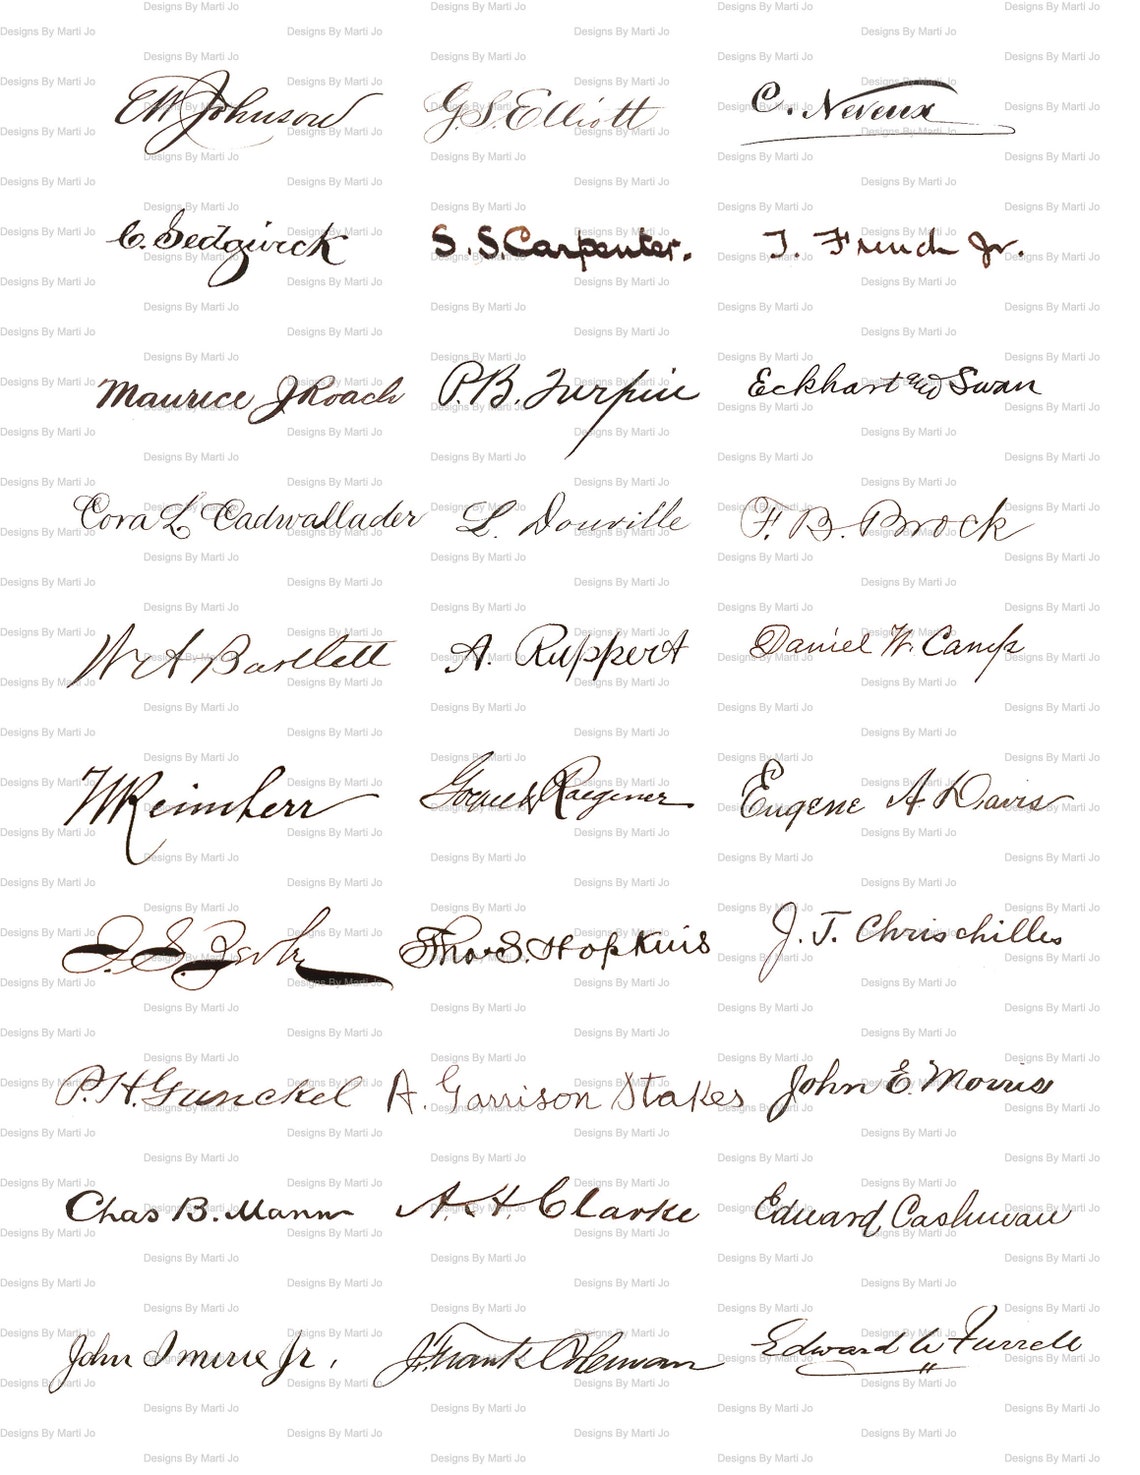 EW Johnson G.S. Elliott C. Neveux
C. Sedgwick S. S. Carpenter. T. French Jr.
Maurice J Roach P.B. Turpin Eckhart and Swan
Cora L. Cadwallader L. Douville F. B. Brock
W A Bartlett A. Ruppert Daniel W. Camp
Reimherr & Raegener Eugene A Davis
S. Thos S. Hopkins J. T. Chrischilles
P. H. Gunckel A. Garrison Stakes John E. Morris
Chas B. Mann A. H. Clarke Edward Cashman
John Imirie Jr. J. Frank Coleman Edward W Furrell
Designs By Marti Jo